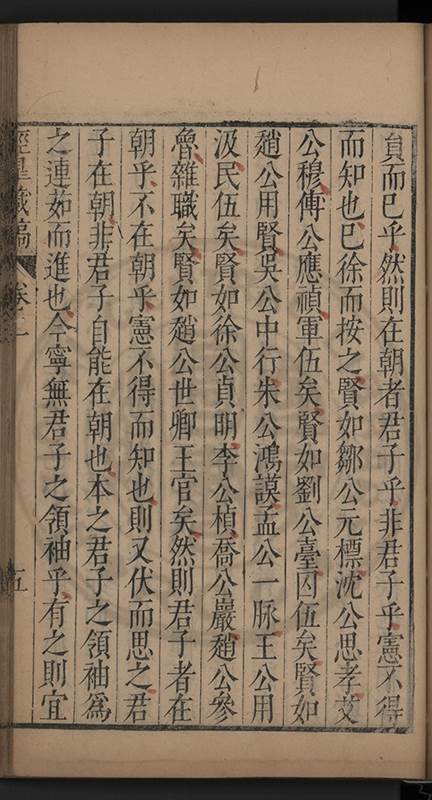 負而已乎然則在朝者君子乎非君子乎憲不得
而知也已徐而按之賢如鄒公元標沈公思孝艾
公穆傅公應禎軍伍矣賢如劉公臺囚伍矣賢如
趙公用賢吳公中行朱公鴻謨孟公一脉王公用
汲民伍矣賢如徐公貞明李公楨喬公巖趙公參
魯雜職矣賢如趙公世卿王官矣然則君子者在
朝乎不在朝乎憲不得而知也則又伏而思之君
子在朝非君子自能在朝也本之君子之領袖為
之連茹而進也今寧無君子之領袖乎有之則宜
涇臯藏稿 卷一 五